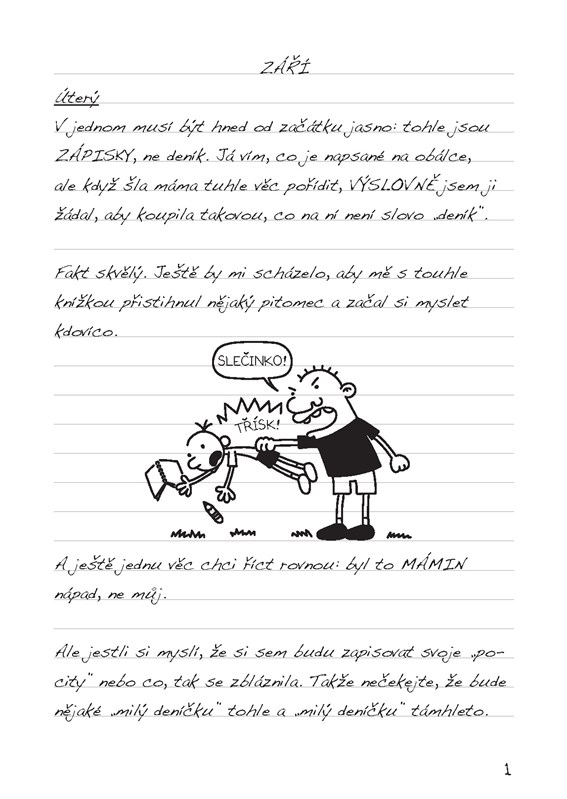 ZÁŘÍ
Úterý
V jednom musí být hned od začátku jasno: tohle jsou
ZÁPISKY, ne deník. Já vím, co je napsané na obálce,
ale když šla máma tuhle věc pořídit, VÝSLOVNĚ jsem ji
žádal, aby koupila takovou, co na ní není slovo „deník“.
Fakt skvělý. Ještě by mi scházelo, aby mě s touhle
knížkou přistihnul nějaký pitomec a začal si myslet
kdovíco.
SLEČINKO!
TŘÍSK!
A ještě jednu věc chci říct rovnou: byl to MÁMIN
nápad, ne můj.
Ale jestli si myslí, že si sem budu zapisovat svoje „po-
city“ nebo co, tak se zbláznila. Takže nečekejte, že bude
nějaké „milý deníčku“ tohle a „milý deníčku“ támhleto.
1